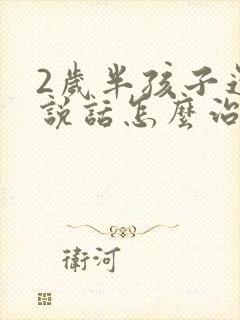 2歲半孩子
說話怎麼治
衛河